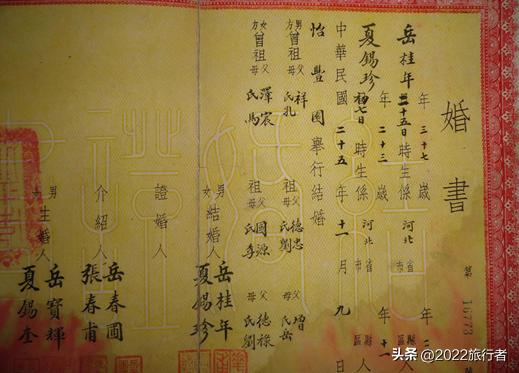 婚書
第15773
岳桂年 年三十七歲 年二
二十五日時生係河北省市縣
夏錫珍 年二十三歲 年十一
初七日時生係河北省市縣區人
中華民國二十五年十一月九日
怡豐園舉行結婚
男方曾祖父祥 祖父德忠 父增
母氏孔 母氏劉 母氏岳
女方曾祖父澤宸 祖父國源 父德祿
母氏馬 母氏李 母氏劉
男結婚人岳桂年
女 夏錫珍
證婚人
介紹人岳春圃
張春甫
男主婚人岳寶輝
女 夏錫奎
头条 @2022旅行者